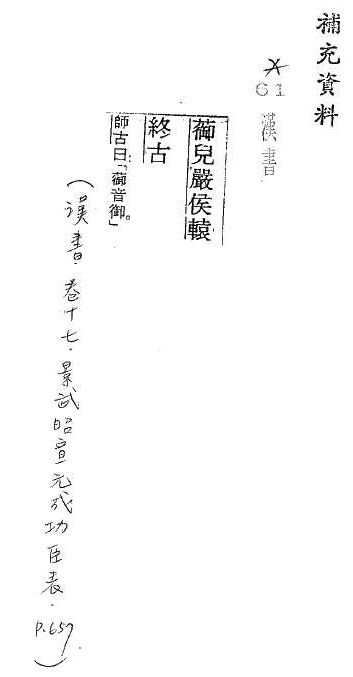 補充資料
61
漢書
蓹兒嚴侯轅
終古
師古曰：「蓹音御。」
（漢書．卷十七．景武昭宣元成功臣表．P.657）